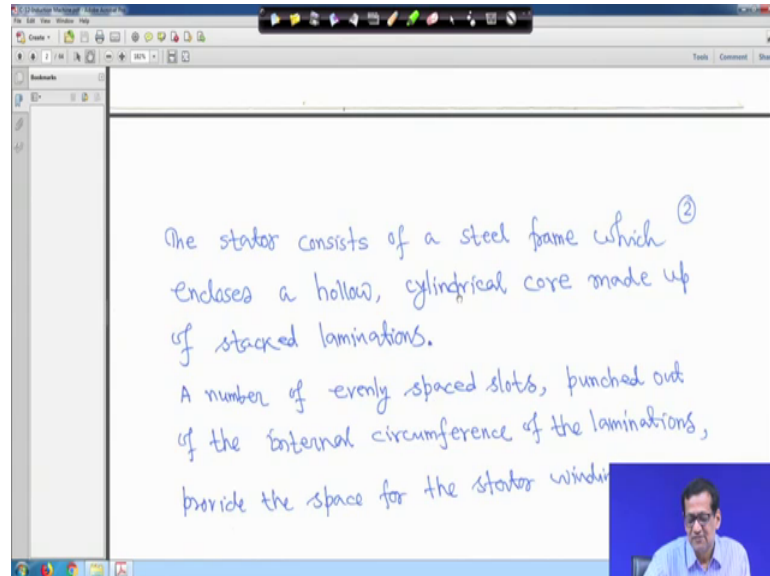 LC-12 Induction Machine.pdf - Adobe Acrobat Pro
File Edit View Window Help
Create
2 / 182%
Tools Comment
Bookmarks
②
The stator consists of a steel frame which
encloses a hollow, cylindrical core made up
of stacked laminations.
A number of evenly spaced slots, punched out
of the internal circumference of the laminations,
provide the space for the stator